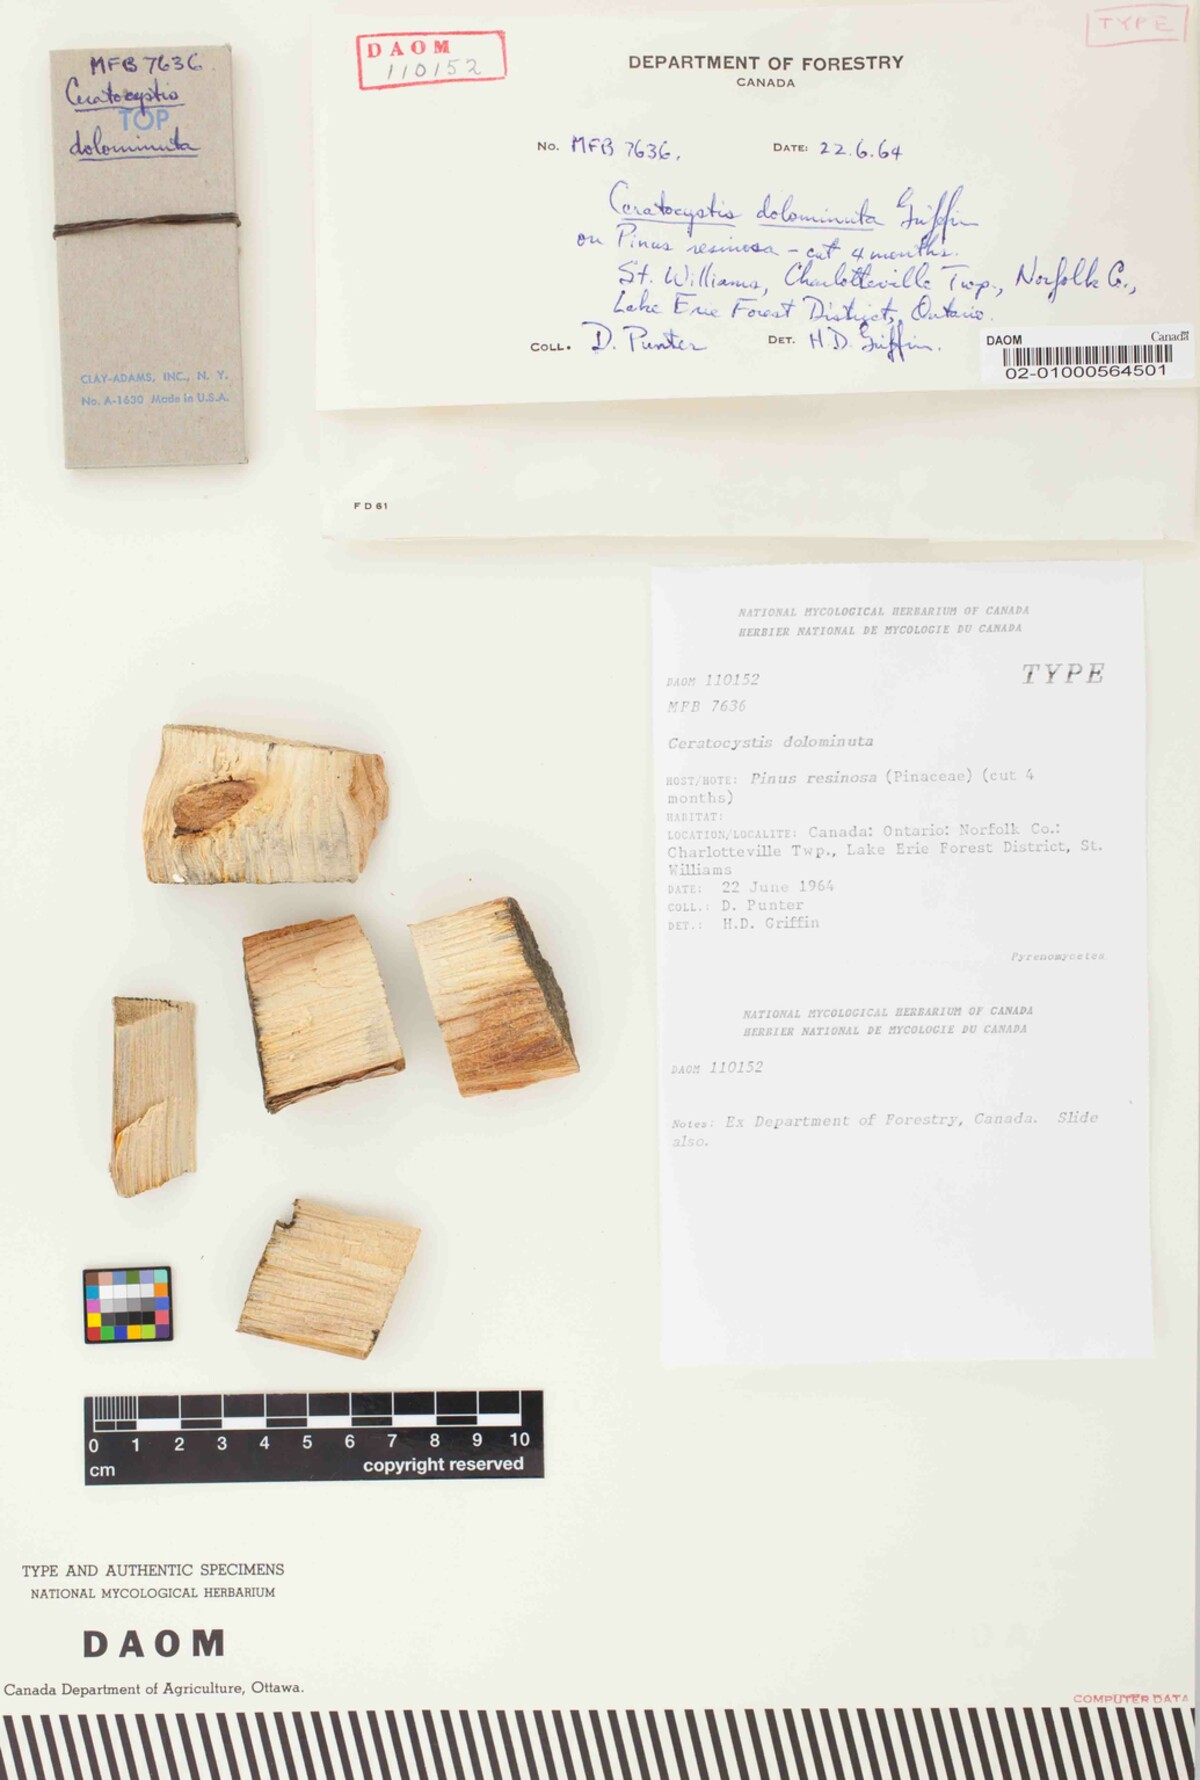 MFB 7636.
Ceratocystis
TOP
dolominuta
CLAY-ADAMS, INC., N. Y.
No. A-1630 Made in U.S.A.
DAOM
110152
TYPE
DEPARTMENT OF FORESTRY
CANADA
No. MFB 7636. DATE: 22.6.64
Ceratocystis dolominuta Griffin
on Pinus resinosa - cut 4 months.
St. Williams, Charlotteville Twp., Norfolk Co.,
Lake Erie Forest District, Ontario.
COLL. D. Punter DET. H.D. Griffin.
DAOM Canada
02-01000564501
FD 61
NATIONAL MYCOLOGICAL HERBARIUM OF CANADA
HERBIER NATIONAL DE MYCOLOGIE DU CANADA
TYPE
DAOM 110152
MFB 7636
Ceratocystis dolominuta
HOST/HOTE: Pinus resinosa (Pinaceae) (cut 4
months)
HABITAT:
LOCATION/LOCALITE: Canada: Ontario: Norfolk Co.:
Charlotteville Twp., Lake Erie Forest District, St.
Williams
DATE: 22 June 1964
COLL.: D. Punter
DET.: H.D. Griffin
Pyrenomycetes
NATIONAL MYCOLOGICAL HERBARIUM OF CANADA
HERBIER NATIONAL DE MYCOLOGIE DU CANADA
DAOM 110152
Notes: Ex Department of Forestry, Canada. Slide
also.
0 1 2 3 4 5 6 7 8 9 10
cm copyright reserved
TYPE AND AUTHENTIC SPECIMENS
NATIONAL MYCOLOGICAL HERBARIUM
DAOM
Canada Department of Agriculture, Ottawa.
COMPUTER DATA